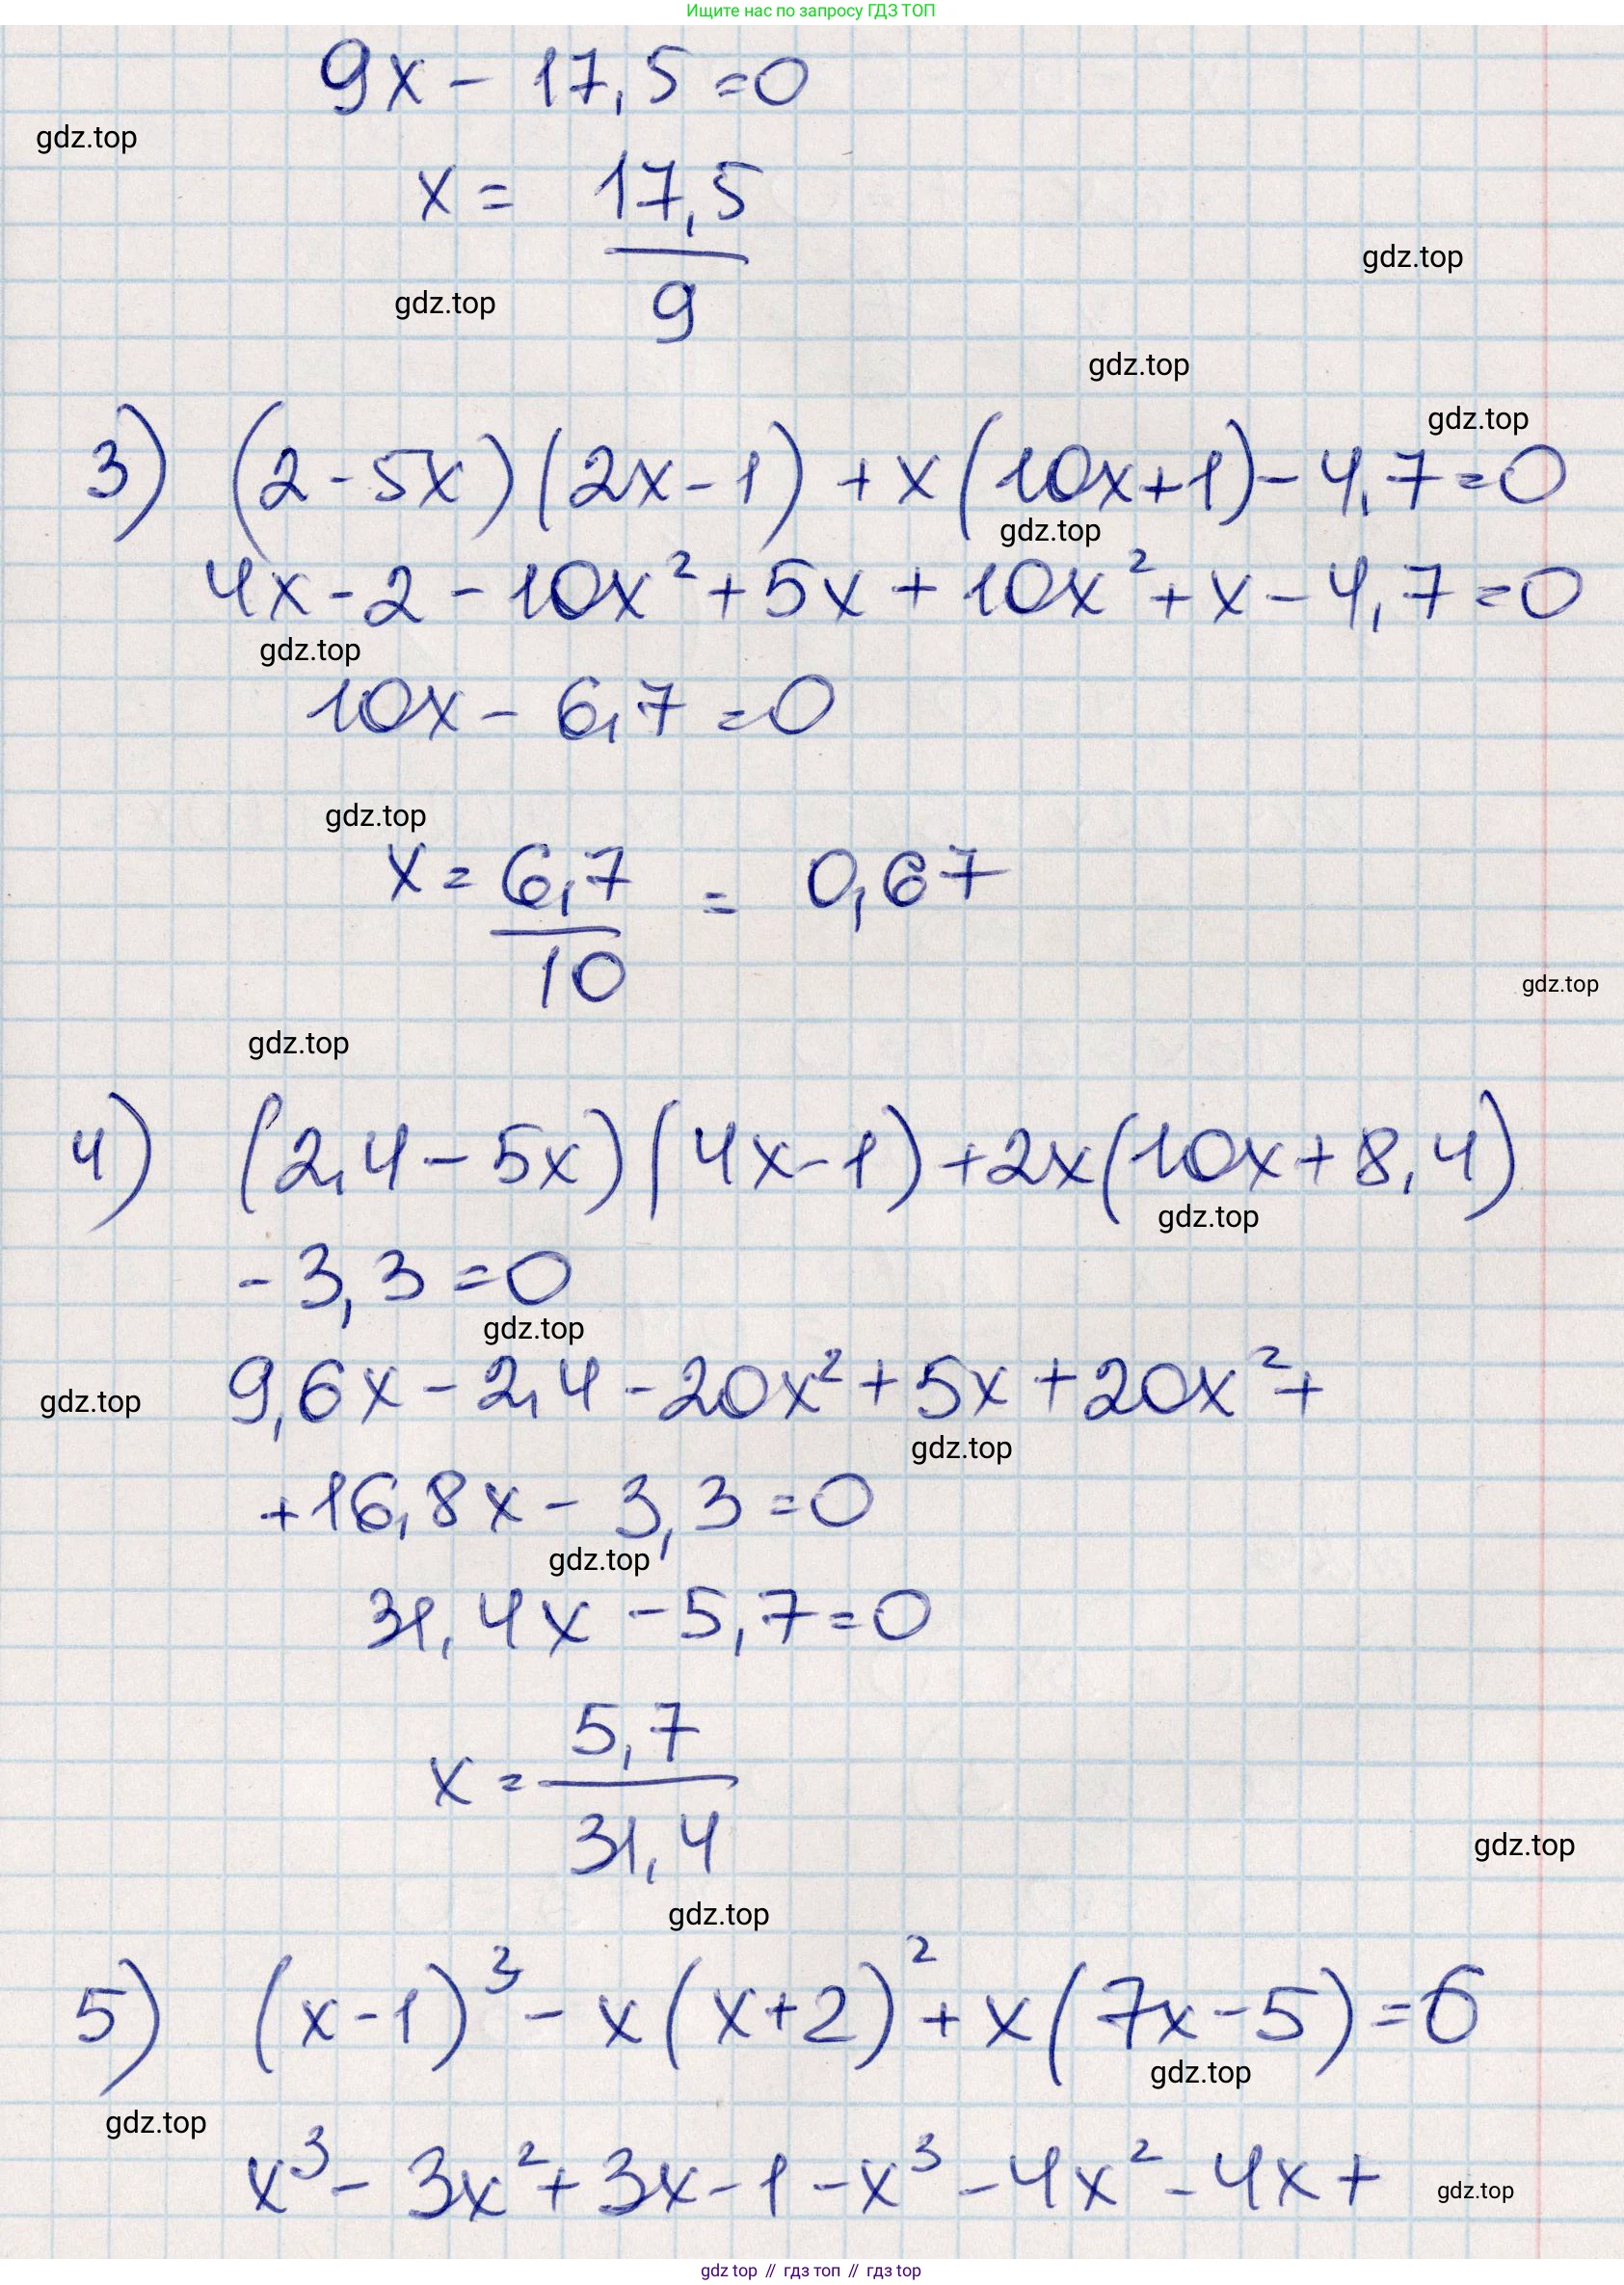 Ищите нас по запросу ГДЗ ТОП
9x - 17,5 = 0
gdz.top
x = 17,5/9
gdz.top
gdz.top
gdz.top
gdz.top
3) (2-5x)(2x-1) + x(10x+1) - 4,7 = 0
gdz.top
4x - 2 - 10x² + 5x + 10x² + x - 4,7 = 0
gdz.top
10x - 6,7 = 0
gdz.top
x = 6,7/10 = 0,67
gdz.top
gdz.top
4) (2,4 - 5x)(4x-1) + 2x(10x + 8,4)
gdz.top
- 3,3 = 0
gdz.top
9,6x - 2,4 - 20x² + 5x + 20x² +
gdz.top
gdz.top
+ 16,8x - 3,3 = 0
gdz.top
31,4x - 5,7 = 0
x = 5,7/31,4
gdz.top
gdz.top
5) (x-1)³ - x(x+2)² + x(7x-5) = 6
gdz.top
gdz.top
x³ - 3x² + 3x - 1 - x³ - 4x² - 4x +
gdz.top
gdz top // гдз топ // гдз top